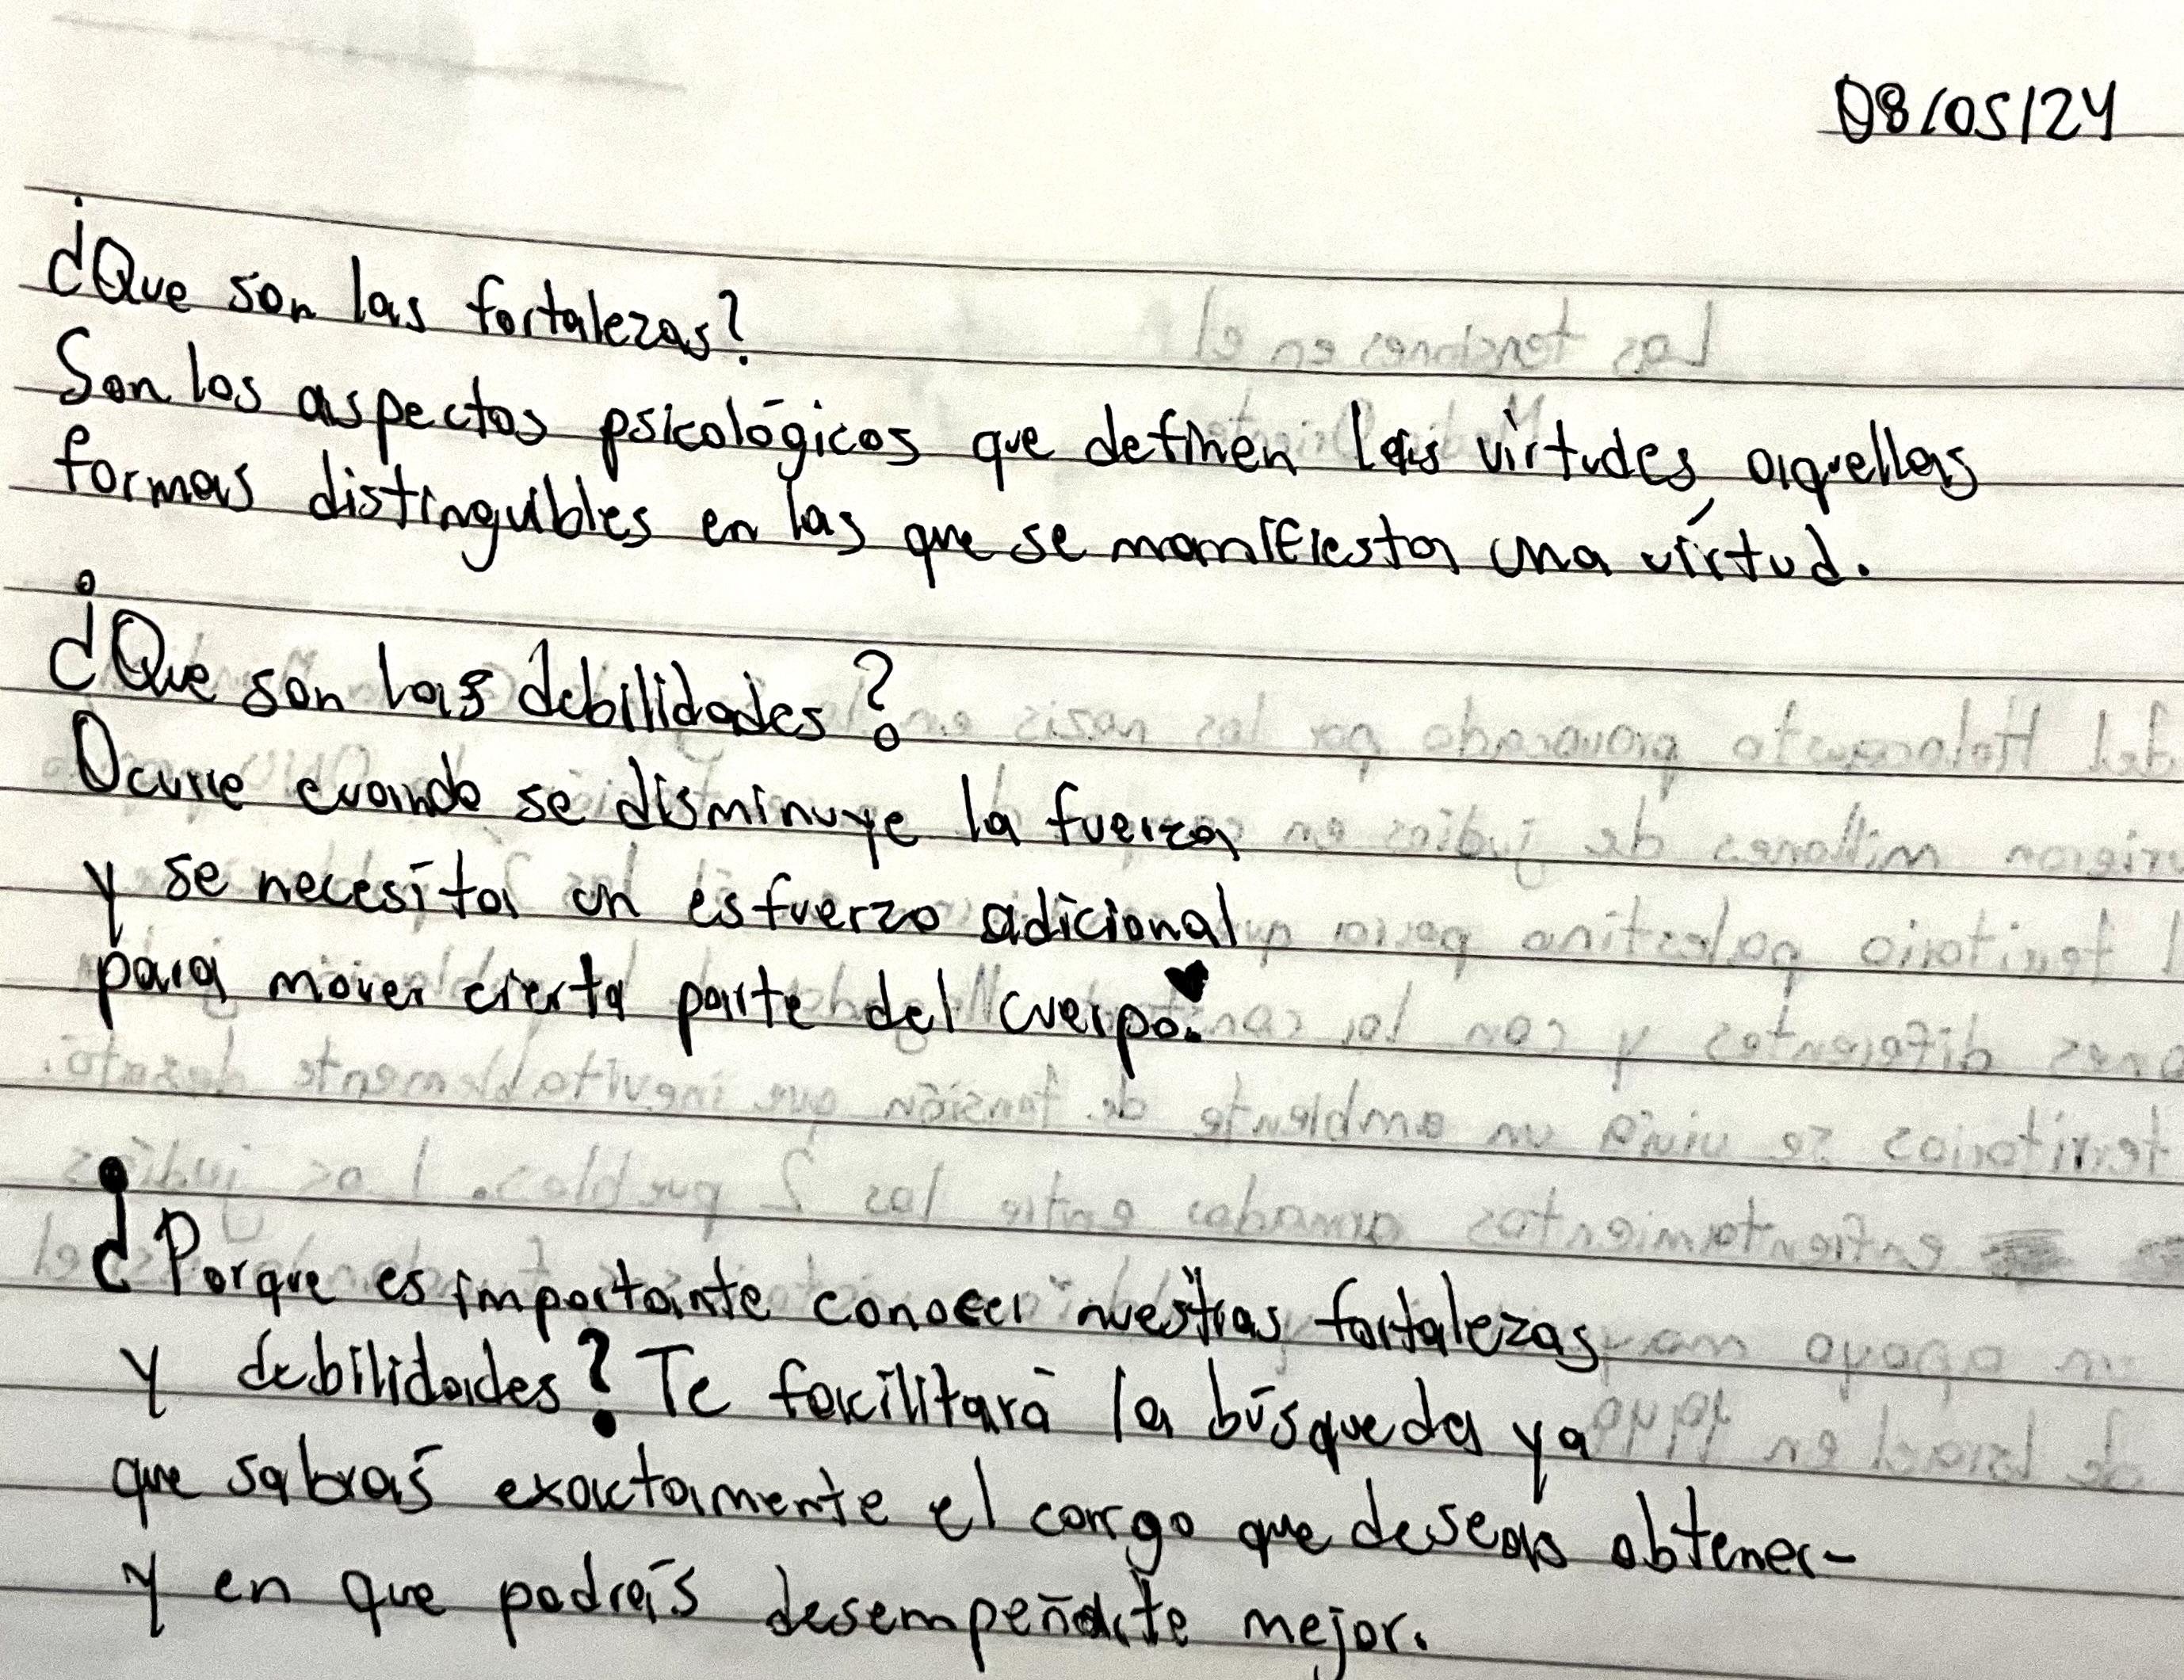 08/05/24
¿Que son las fortalezas?
Son los aspectos psicológicos que definen las virtudes, aquellas
formas distinguibles en las que se manifiesta una virtud.
¿Que son las debilidades?
Ocurre cuando se disminuye la fuerza
y se necesita un esfuerzo adicional
para mover cierta parte del cuerpo.
¿Porque es importante conocer nuestras fortalezas
y debilidades? Te facilitará la búsqueda ya
que sabrás exactamente el cargo que deseas obtener-
y en que podrás desempeñarte mejor.